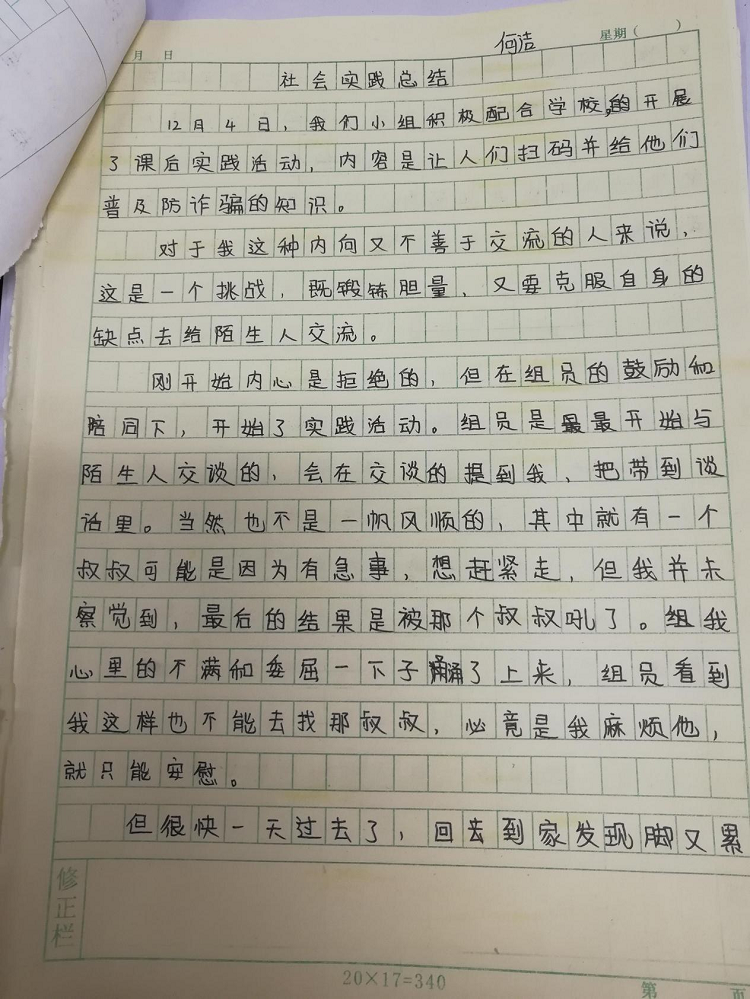 月 日 何洁 星期( )
社会实践总结
12月4日，我们小组积极配合学校的开展
了课后实践活动，内容是让人们扫码并给他们
普及防诈骗的知识。
对于我这种内向又不善于交流的人来说，
这是一个挑战，既锻炼胆量，又要克服自身的
缺点去给陌生人交流。
刚开始内心是拒绝的，但在组员的鼓励和
陪同下，开始了实践活动。组员是最最开始与
陌生人交谈的，会在交谈的提到我，把带到谈
话里。当然也不是一帆风顺的，其中就有一个
叔叔可能是因为有急事，想赶紧走，但我并未
察觉到，最后的结果是被那个叔叔吼了。组我
心里的不满和委屈一下子涌了上来，组员看到
我这样也不能去找那叔叔，必竟是我麻烦他，
就只能安慰。
但很快一天过去了，回去到家发现脚又累
修正栏
20×17=340
第 页